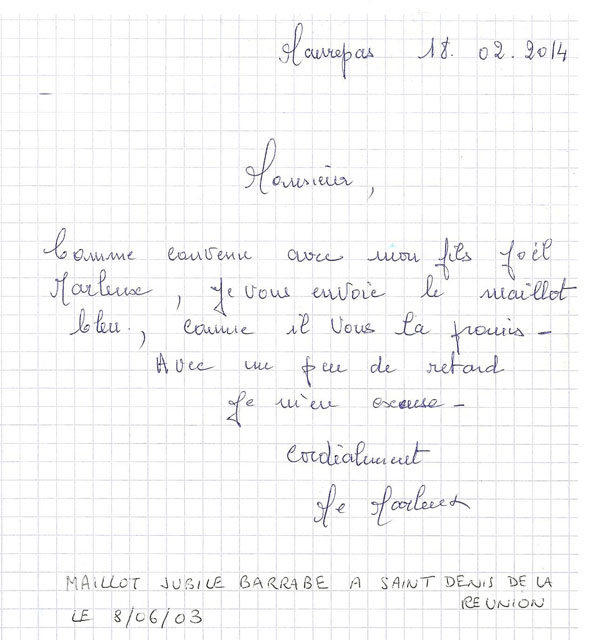 Maurepas 18. 02. 2014
Monsieur,
Comme convenu avec mon fils Joël
Marleux, Je vous envoie le maillot
bleu., comme il vous la promis -
Avec un peu de retard
Je m'en excuse -
Cordialement
Me Marleux
MAILLOT JUBILE BARRABE A SAINT DENIS DE LA
REUNION
LE 8/06/03